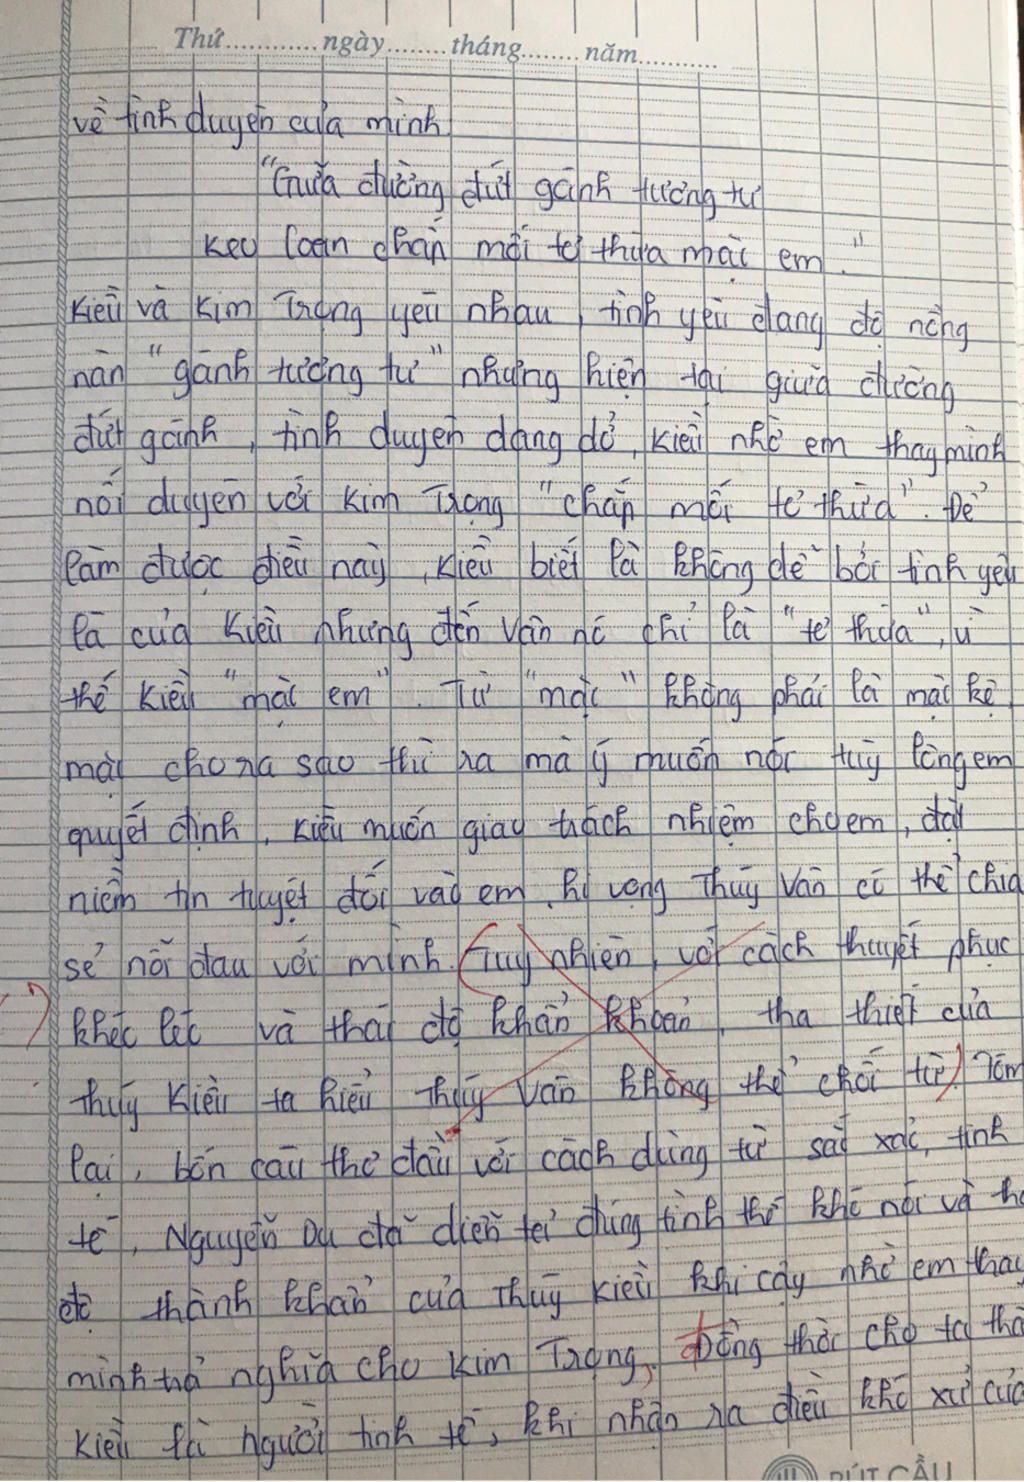 Thứ............ngày........tháng........năm...........
về tình duyên của mình
"Giữa đường đứt gánh tương tư
Keo loan chắp mối tơ thừa mặc em."
Kiều và Kim Trọng yêu nhau, tình yêu đang độ nồng
nàn "gánh tương tư" nhưng hiện tại giữa đường
đứt gánh, tình duyên dang dở, Kiều nhờ em thay mình
nối duyên với Kim Trọng "chắp mối tơ thừa". Để
làm được điều này, Kiều biết là không dễ bởi tình yêu
là của Kiều nhưng đến Vân nó chỉ là "tơ thừa", vì
thế Kiều "mặc em". Từ "mặc" không phải là mặc kệ,
mặc cho ra sao thì ra mà ý muốn nói tùy lòng em
quyết định, Kiều muốn giao trách nhiệm cho em, đặt
niềm tin tuyệt đối vào em, hi vọng Thúy Vân có thể chia
sẻ nỗi đau với mình. (Tuy nhiên, với cách thuyết phục
khéo léo và thái độ khẩn khoản, tha thiết của
Thúy Kiều ta hiểu Thúy Vân không thể chối từ.) Tóm
lại, bốn câu thơ đầu với cách dùng từ sắc xảo, tinh
tế, Nguyễn Du đã diễn tả đúng tình thế khó nói và thái
độ thành khẩn của Thúy Kiều khi cậy nhờ em thay
mình trả nghĩa cho Kim Trọng, Đồng thời cho ta thấy
Kiều là người tinh tế, khi nhận ra điều khó xử của
BÚT CẦU